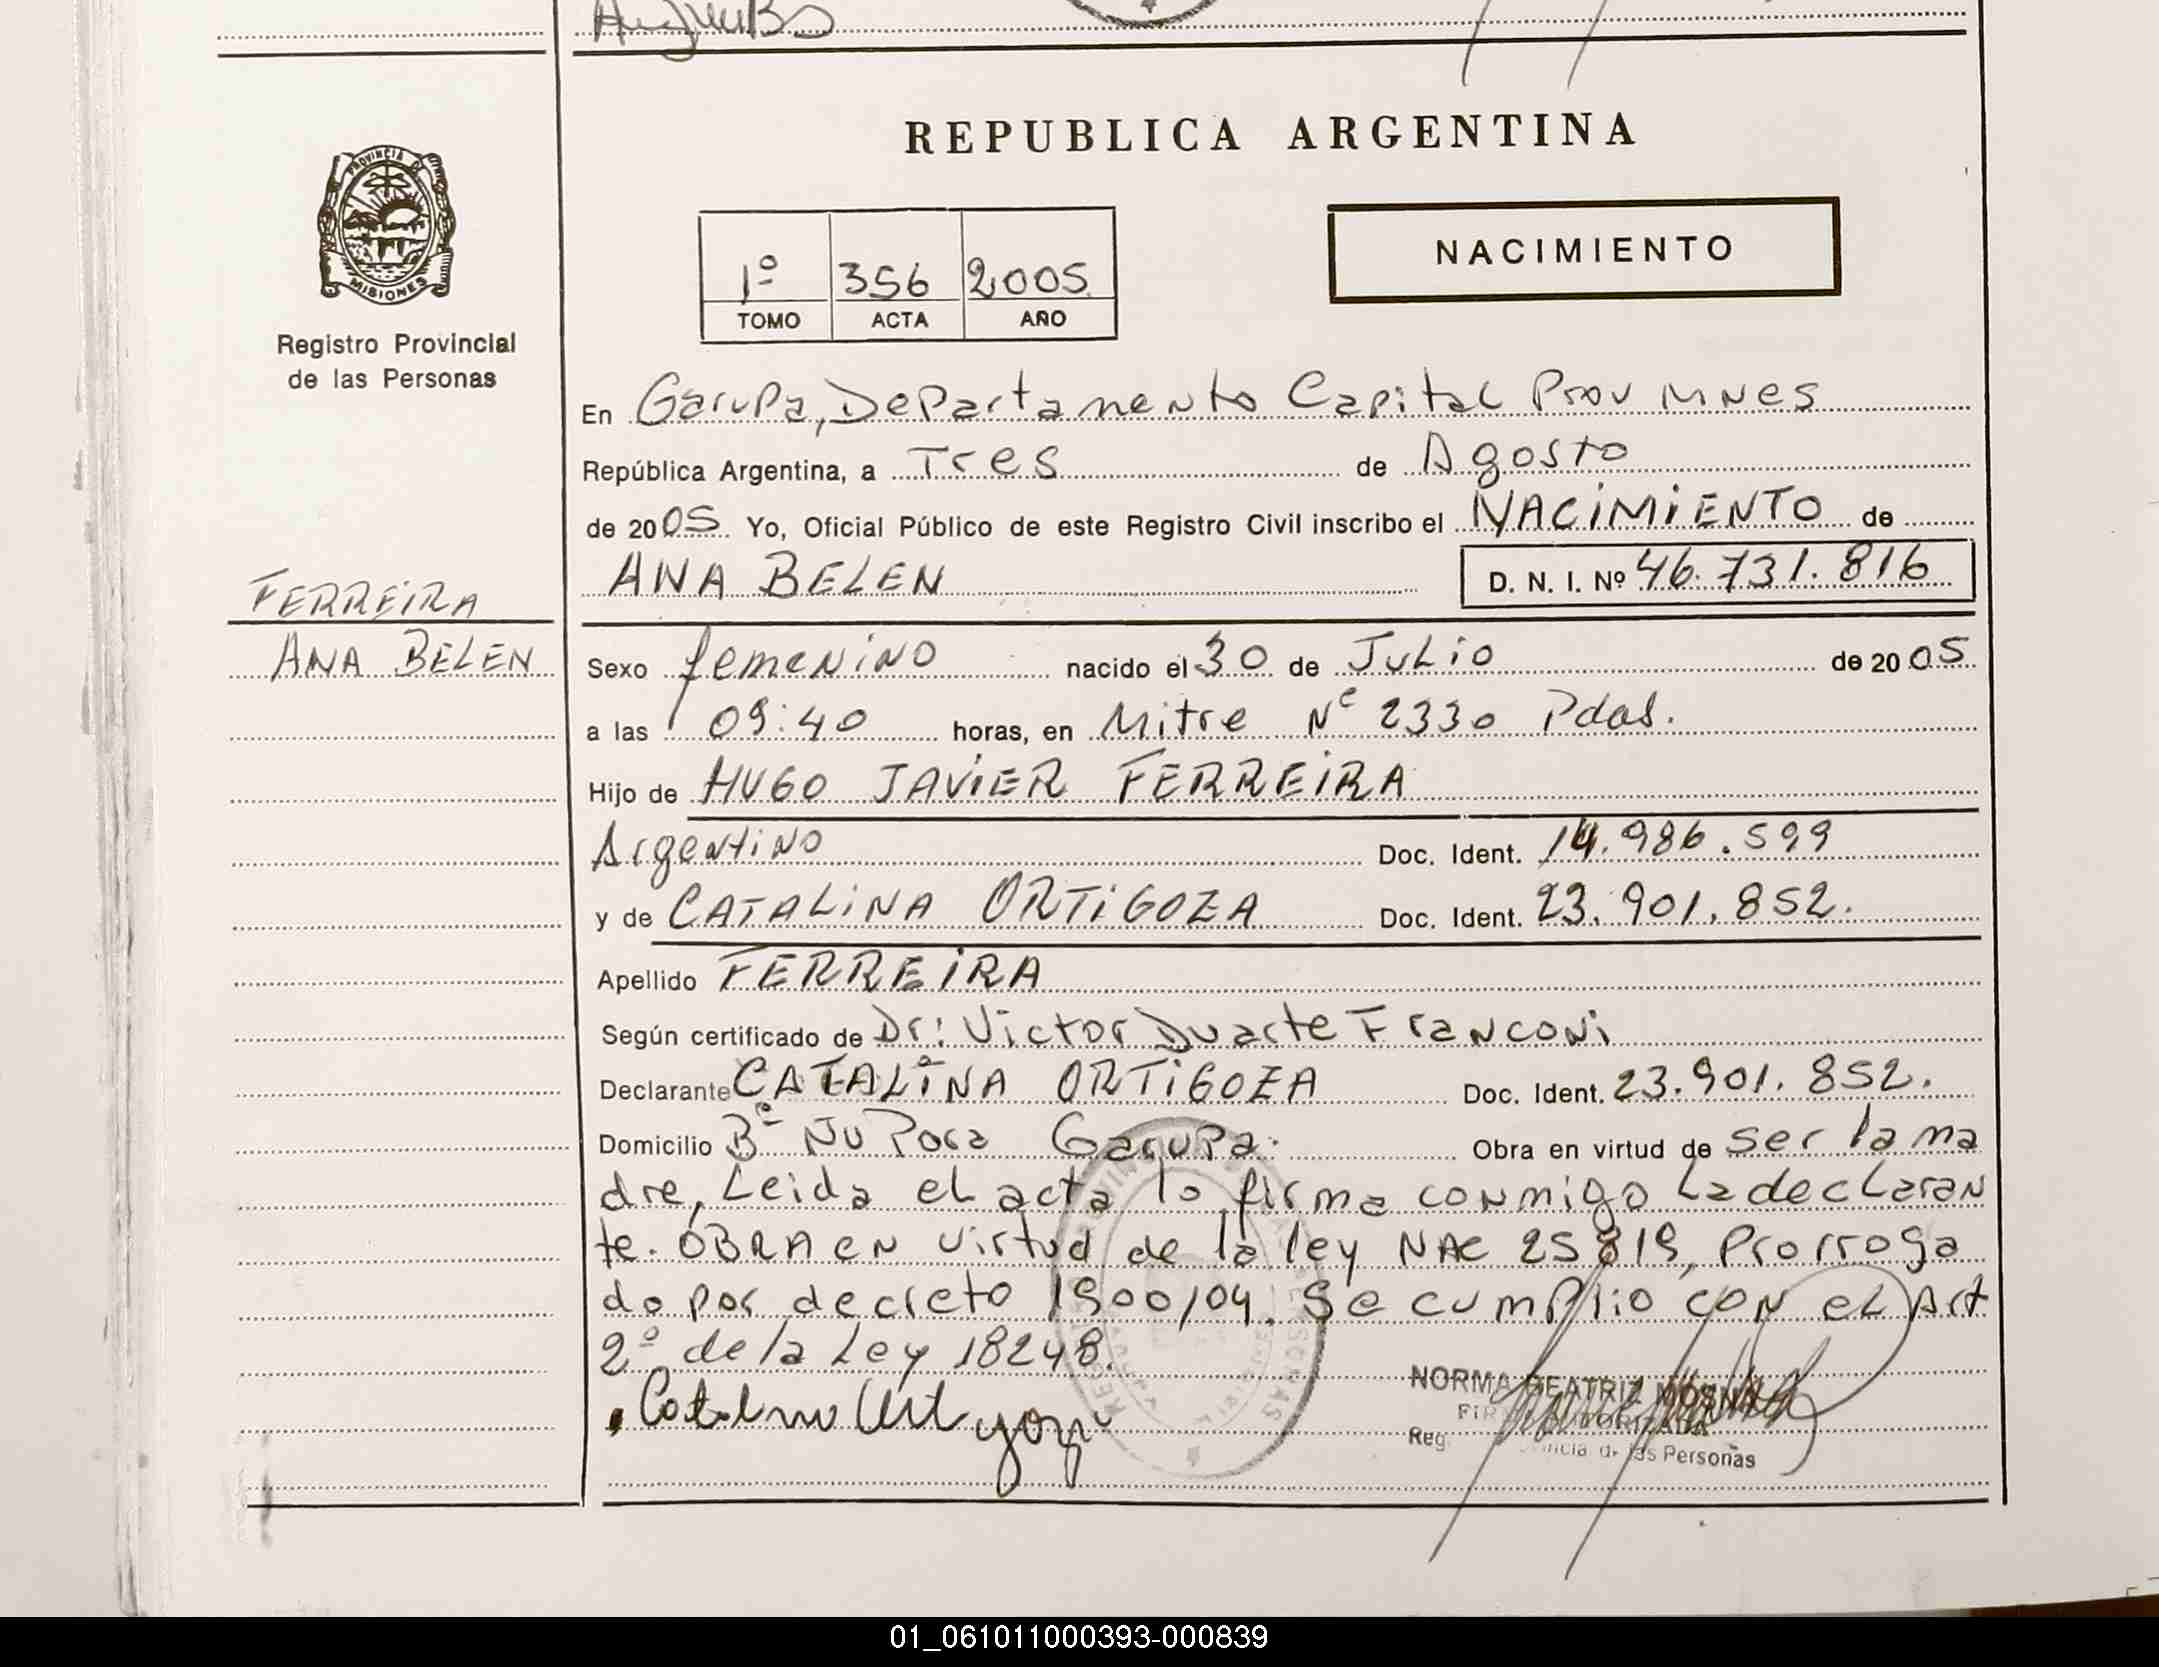 REPUBLICA ARGENTINA
PROVINCIA DE MISIONES
Registro Provincial
de las Personas
1º 356 2005
TOMO ACTA AÑO
NACIMIENTO
En Garupa, Departamento Capital Prov Mnes
República Argentina, a Tres de Agosto
de 2005 Yo, Oficial Público de este Registro Civil inscribo el NACIMIENTO de
ANA BELEN D. N. I. Nº 46.731.816
FERREIRA
ANA BELEN
Sexo femenino nacido el 30 de Julio de 2005
a las 09:40 horas, en Mitre Nº 2330 Pdas.
Hijo de HUGO JAVIER FERREIRA
Argentino Doc. Ident. 14.986.599
y de CATALINA ORTIGOZA Doc. Ident. 23.901.852.
Apellido FERREIRA
Según certificado de Dr: Victor Duarte Franconi
Declarante CATALINA ORTIGOZA Doc. Ident. 23.901.852.
Domicilio Bº Ñu Pora Garupa. Obra en virtud de ser la ma
dre, Leida el acta la firma conmigo La declaran
te. OBRA en virtud de la ley NAC 25819, Prorroga
do por decreto 1900/04. Se cumplio con el Art
2º de la Ley 18248.
NORMA BEATRIZ MOSNA
AUTORIZADA
Reg. de las Personas
01_061011000393-000839